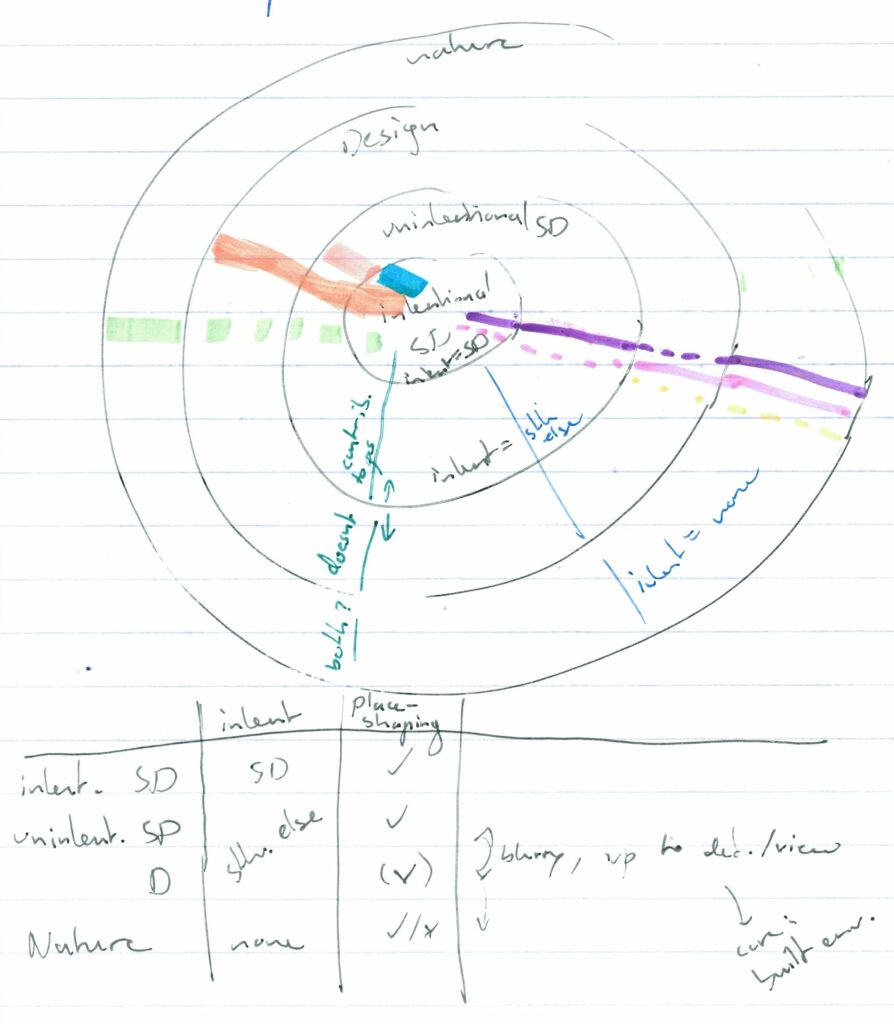 nature
Design
unintentional SD
intentional
SD
intent=SD
intent = sth
else
intent = none
contrib.
to ps
doesn't
both?
intent
place-
shaping
intent. SD
SD
✓
unintent. SD
sth. else
✓
D
(✓)
blurry, up to def./view
Nature
none
✓/x
built env.